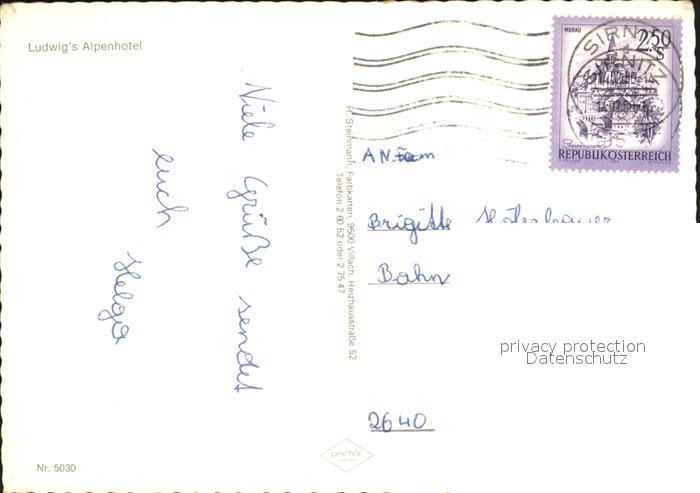 Ludwig's Alpenhotel
Viele Grüße sendet
euch
Helga
H. Steinmann, Farbkarten, 9500 Villach, Heizhausstraße 52
Telefon 2 60 62 oder 2 75 47
MURAU
2.50
S
REPUBLIK ÖSTERREICH
SIRNITZ
SIRNITZ
AN Fam
Brigitte
Bahn
privacy protection
Datenschutz
2640
pechar
Nr. 5030